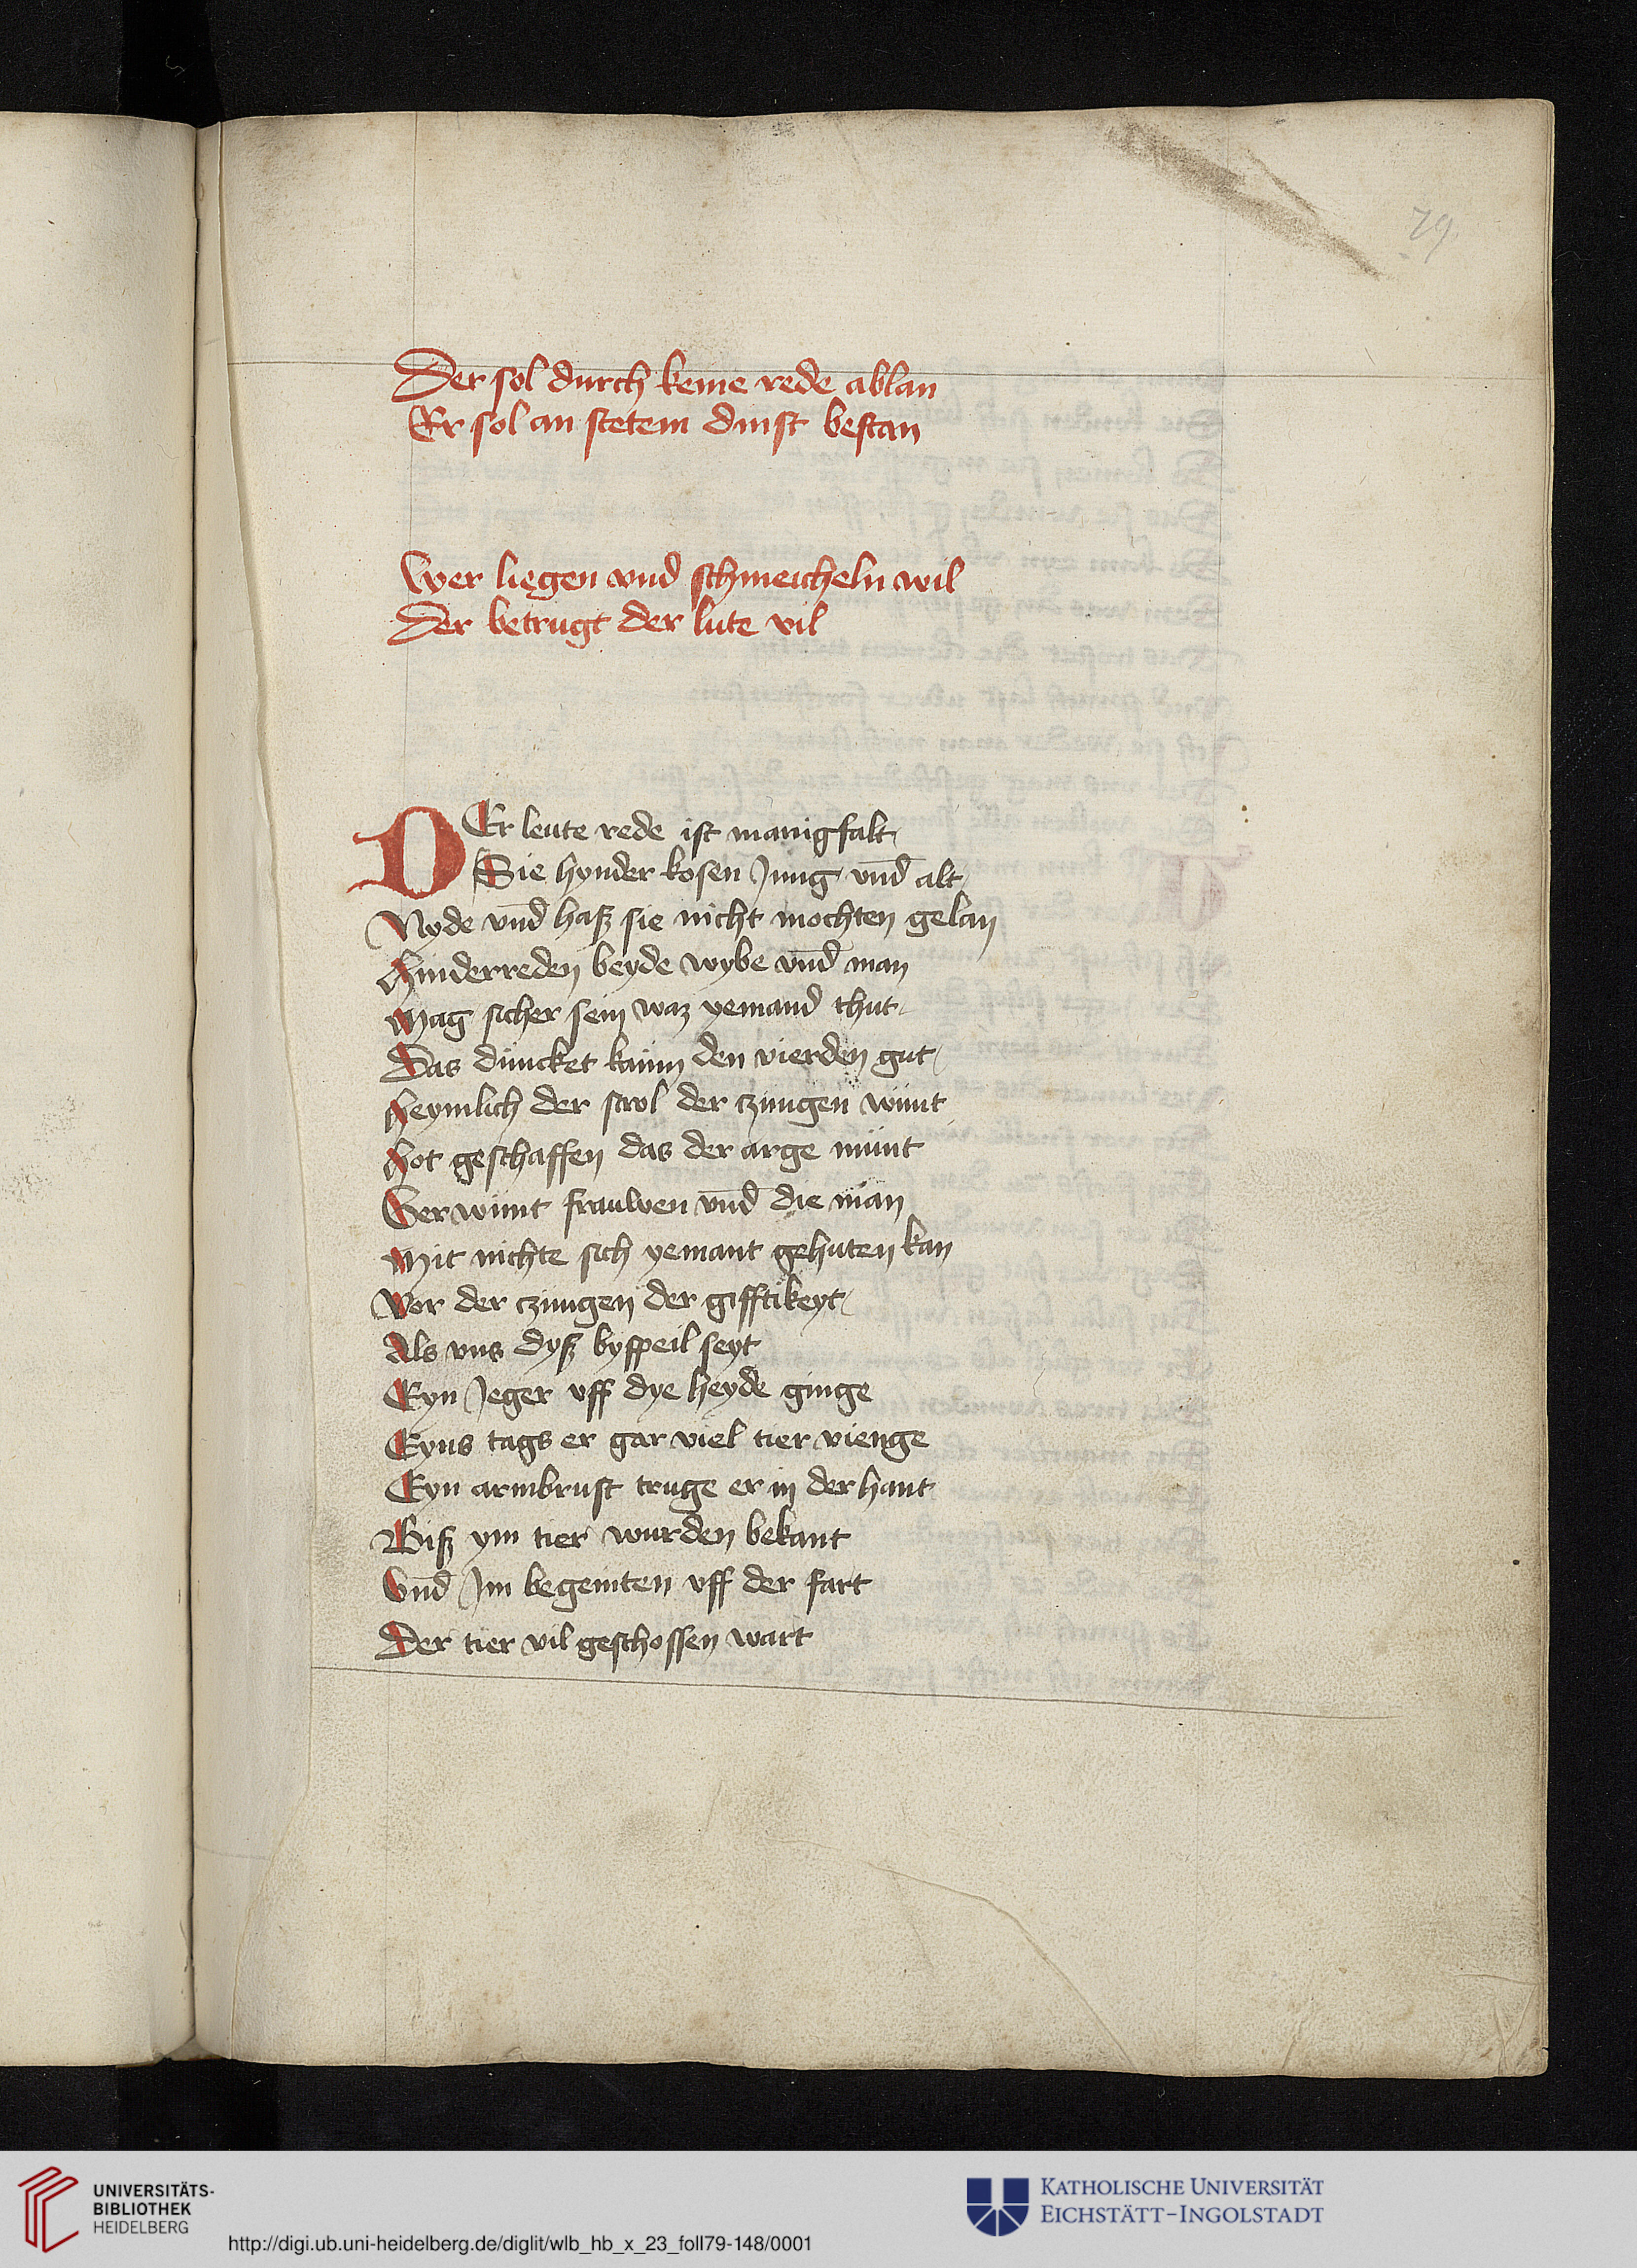 79
Der sol durch keine rede ablan
Er sol an stetem dinst bestan
Wer liegen vnd schmeicheln wil
Der betrugt der lute vil
DEr leute rede ist manigfalt
Sie hynder kosen Jung vnd̄ alt
Nyde vnd̄ hasz sie nicht mochten gelan
Hinderreden beyde wybe vnd̄ man
Mag sicher sein waz yemand thut
Das duncket kaum den vierden gut
Heymlich der stral der czungen wunt
Hot geschaffen das der arge munt
Verwunt frauwen vnd̄ die man
Mit nichte sich yemant gehuten kan
Vor der czungen der gifftikeyt
Als vns dysz byspeil seyt
Eyn Jeger vff dye heyde ginge
Eyns tags er gar viel tier vienge
Eyn armbrust truge er in der hant
Bisz ym tier wurden bekant
Vnd̄ Im begeinten vff der fart
Der tier vil geschossen wart
UNIVERSITÄTS-
BIBLIOTHEK
HEIDELBERG
http://digi.ub.uni-heidelberg.de/diglit/wlb_hb_x_23_foll79-148/0001
KATHOLISCHE UNIVERSITÄT
EICHSTÄTT-INGOLSTADT